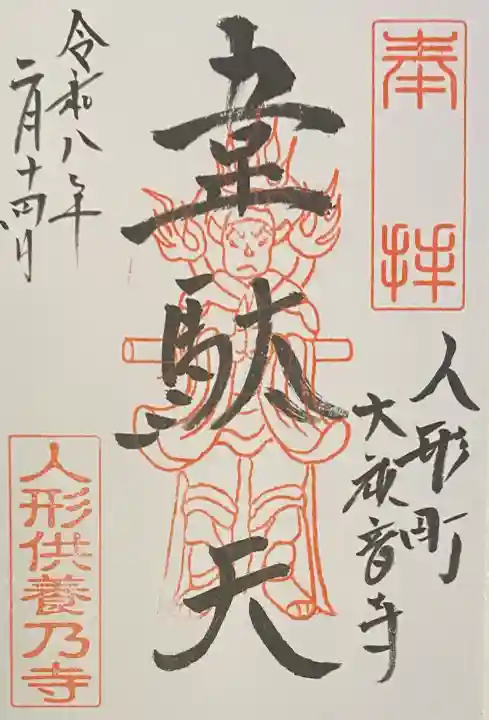 奉拝
人形町
大観音寺
韋駄天
令和八年
二月十四日
人形供養乃寺